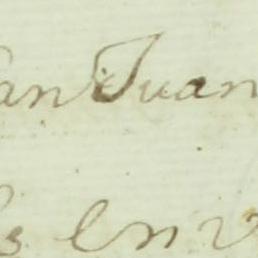 an Juan
s en v